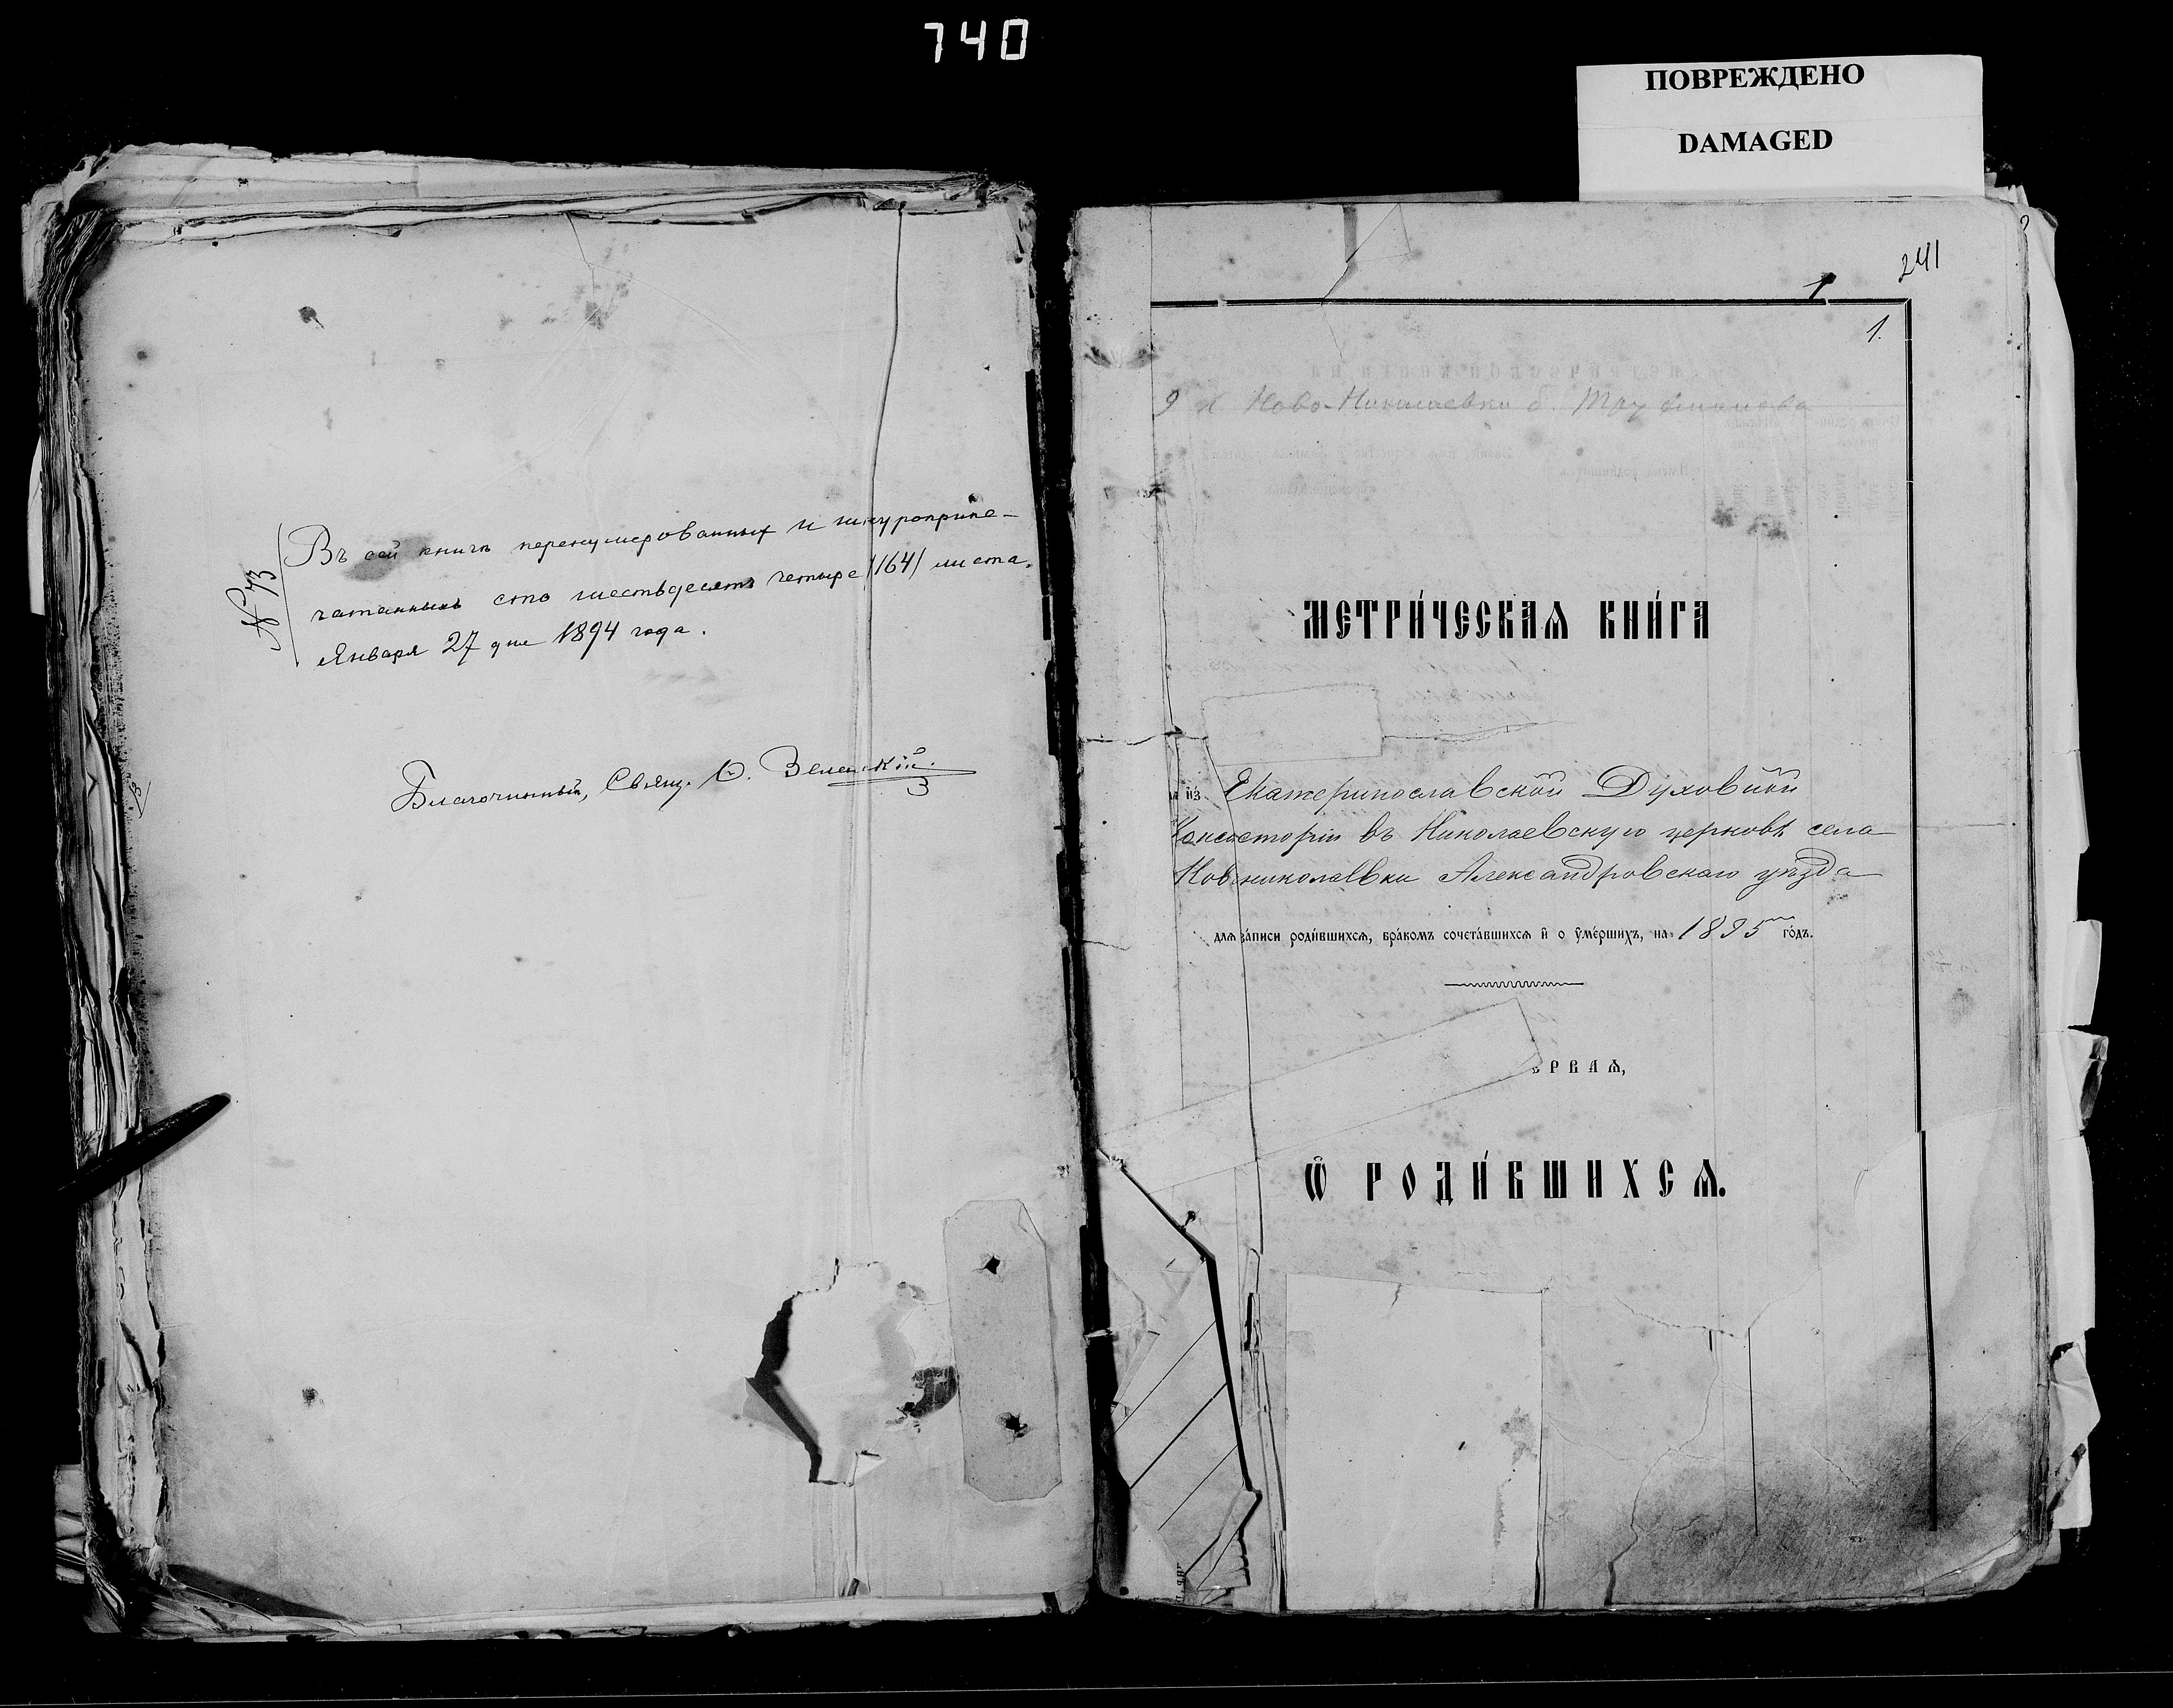 740
ПОВРЕЖДЕНО
DAMAGED
№ 73
Въ сей книгѣ перенумерованныхъ и шнуроприпе-
чатанныхъ сто шестьдесятъ четыре (164) листа.
Января 27 дня 1894 года.
Благочинный, Свящ. Ѳ. Зеленскій.
241
1
1.
Ново-Николаевки б.
МЕТРИ́ЧЕСКАѦ КНИ́ГА
и҆з̾ Екатеринославской Духовной
Консисторіи въ Николаевскую церковь села
Новониколаевки Александровскаго уѣзда
для за́писи роди́вшихсѧ, бра́комъ сочета́вшихсѧ и҆ о ѹ҆ме́ршихъ, на 1895 го́дъ.
РВАѦ,
Ѡ҆ РОДИ́ВШИХСѦ.